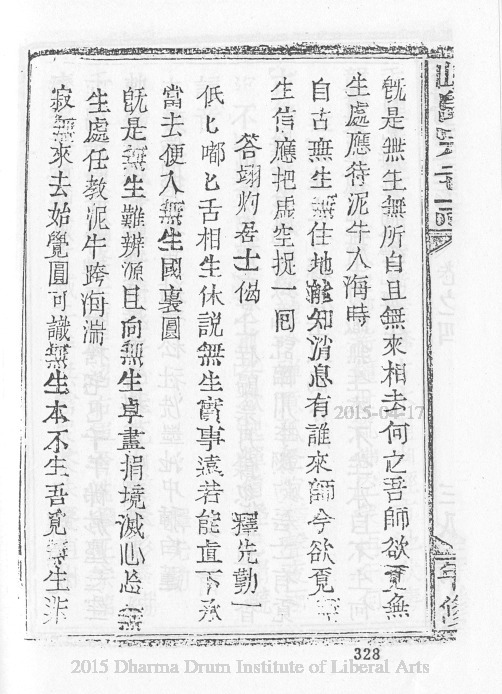 旣是無生無所自且無來相去何之吾師欲覓無
生處應待泥牛入海時
自古無生無住地誰知消息有誰來師今欲覓無
生信應把虛空捉一囘
答翊灼居士偈　釋先勤
低匕嘟匕舌相生休說無生實事遠若能直下承
當去便入無生國裏圓
旣是無生難辨源且向無生卓盡捐境滅心忘無
生處任教泥牛跨海湍
寂無來去始覺圓可識無生本不生吾覓無生非
2015-04-17
328
2015 Dharma Drum Institute of Liberal Arts